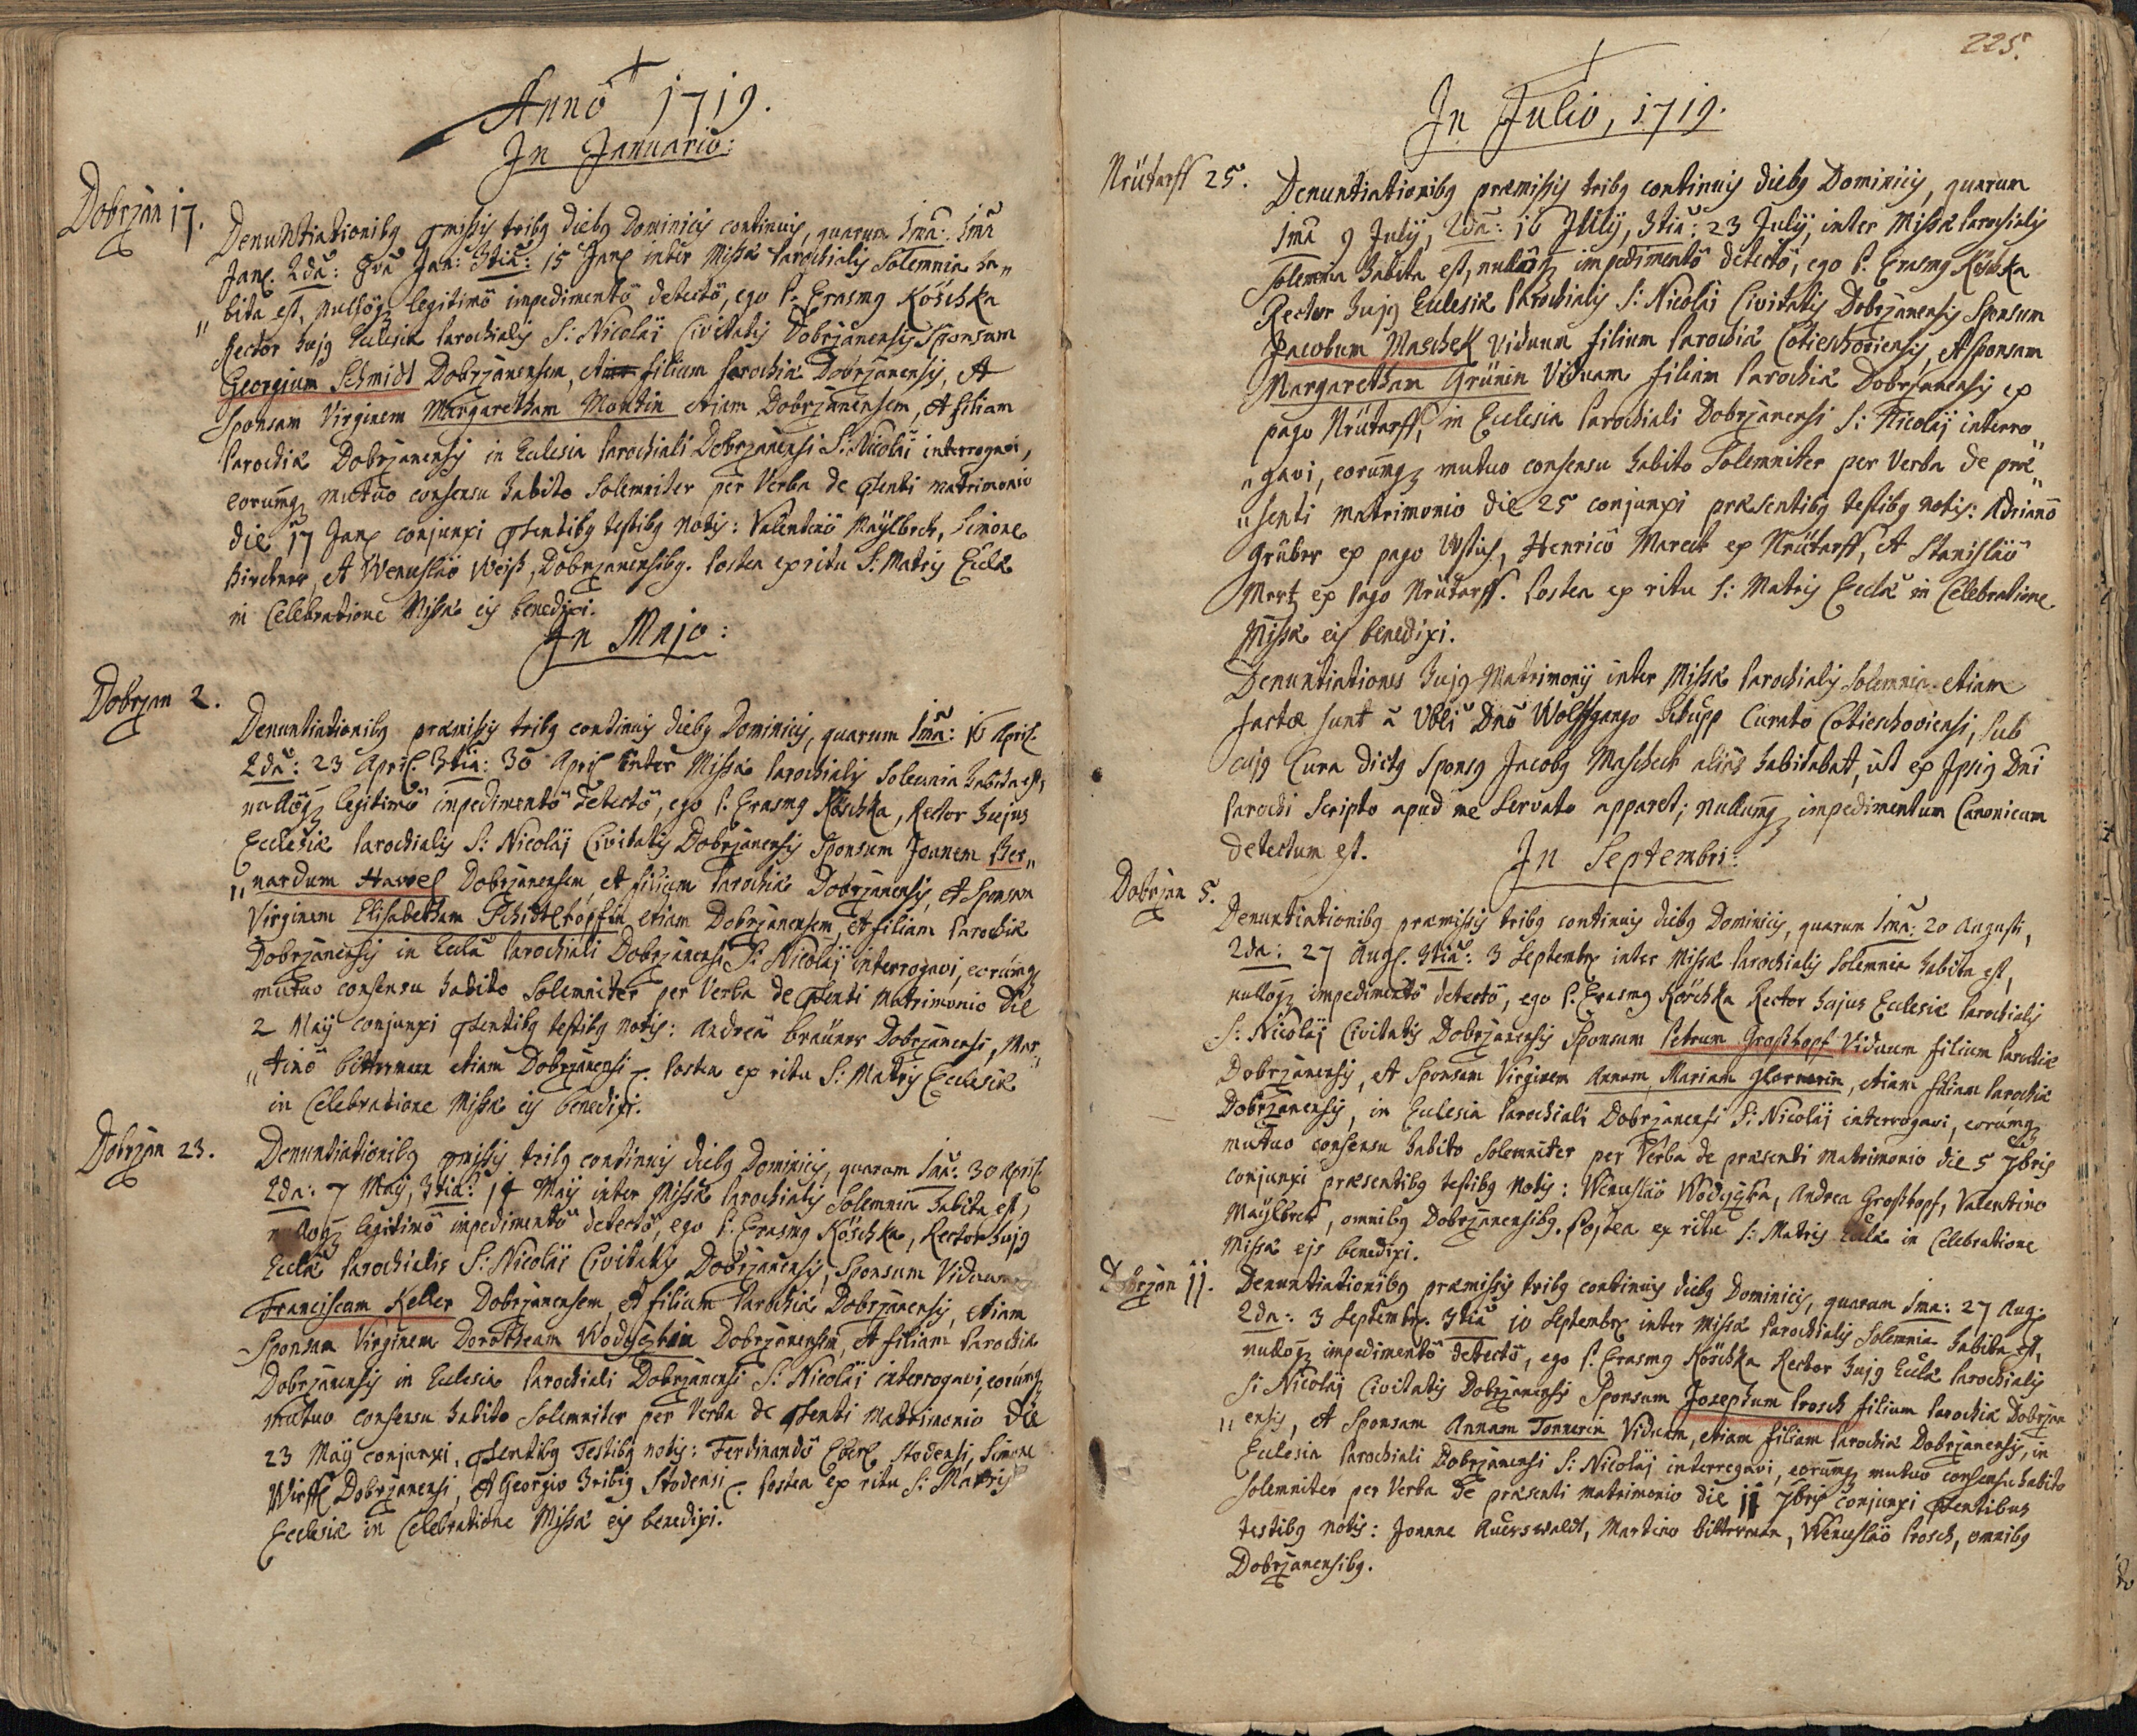 Anno 1719.
In Januario:
Dobrzan 17.
Denuntiationibg pmissis tribg diebg Dominicis continuis, quarum 1ma: 1ma
Jan: 2da: 8va Jan: 3tia: 15 Jan: inter Missæ Parochialis Solemnia ha„
„bita est, nulloq legitimo impedimento detecto, ego P. Erasmg Köschka
Rector hujg Eclesiæ Parochialis S: Nicolaij Civitatis Dobrzanensis Sponsum
Georgium Schmidt Dobrzanensem, et filium Parochiæ Dobrzanensis, et
Sponsam Virginem Margaretham Montin etiam Dobrzanensem, et filiam
Parochiæ Dobrzanensis in Eclesia Parochiali Dobrzanensi S: Nicolaij interrogavi,
eorumq mutuo consensu habito Solemniter per Verba de psenti matrimonio
die 17 Jan: conjunxi psentibg testibg notis: Valentino Maÿlbeck, Simone
Kirchner, et Wenceslao Weiß, Dobrzanensibg. Postea ex ritu S: Matris Eclæ
in Celebratione Missæ eis benedixi.
In Majo:
Dobrzan 2.
Denuntiationibg præmissis tribg continuis diebg Dominicis, quarum 1ma: 16 April:
2da: 23 April: 3tia: 30 April inter Missæ Parochialis Solemnia habita est,
nulloq legitimo impedimento detecto, ego P. Erasmg Köschka, Rector hujus
Ecclesiæ Parochialis S: Nicolaij Civitatis Dobrzanensis Sponsum Joannem Ber„
„nardum Hawel Dobrzanensem, et filium Parochiæ Dobrzanensis, et Sponsam
Virginem Elisabetham etiam Dobrzanensem, et filiam Parochiæ
Dobrzanensis in Ecclia Parochiali Dobrzanensi S: Nicolaij interrogavi, eorumq
mutuo consensu habito Solemniter per Verba de psenti Matrimonio die
2 Maij conjunxi psentibg testibg notis: Andrea Braüner Dobrzanensi, Mar„
„tino Bitterman etiam Dobrzanensi. Postea ex ritu S: Matris Ecclesiæ
in Celebratione Missæ eis benedixi.
Dobrzan 23.
Denuntiationibg pmissis tribg continuis diebg Dominicis, quarum 1ma: 30 April
2da: 7 Maij, 3tia: 14 Maij inter Missæ Parochialis Solemnia habita est,
nulloq legitimo impedimento detecto, ego P. Erasmg Köschka, Rector hujg
Eclæ Parochialis S: Nicolai Civitatis Dobrzanensis, Sponsum Viduum
Franciscum Keller Dobrzanensem, et filium Parochiæ Dobrzanensis, etiam
Sponsam Virginem Dorotheam Wodiczkin Dobrzanensem, et filiam Parochiæ
Dobrzanensis in Eclesia Parochiali Dobrzanensi S: Nicolaij interrogavi, eorumq
mutuo consensu habito Solemniter per Verba de psenti Matrimonio die
23 Maij conjunxi, psentibg Testibg notis: Ferdinando Eberl Stodensi, Simone
Wirffl Dobrzanensi, et Georgio Stodensi. Postea ex ritu S: Matris
Ecclesiæ in Celebratione Missæ eis benedixi.
225.
In Julio, 1719.
Nrütarff 25.
Denuntiationibg præmissis tribg continuis diebg Dominicis, quarum
1ma 9 Julij, 2da: 16 Julij, 3tia: 23 Julij, inter Missæ Parochialis
Solemnia habita est, nulloq impedimento detecto, ego P. Erasmg Köschka
Rector hujg Eclesiæ Parochialis S: Nicolaj Civitatis Dobrzanensis Sponsum
Jacobum Maschek Viduum filium Parochiæ Cotieschoviensis, et Sponsam
Margaretham Grünin Viduam filiam Parochiæ Dobrzanensis ex
pago Nrütarff, in Ecclesia Parochiali Dobrzanensi S: Nicolaij interro„
„gavi, eorumq mutuo consensu habito Solemniter per Verba de præ„
„senti matrimonio die 25 conjunxi præsentibg testibg notis: Adriano
Gruber ex pago, Henrico Mareck ex Nrütarff, et Stanislao
Mertz ex Pago Nrütarff. Postea ex ritu S: Matris Ecclæ in Celebratione
Missæ eis benedixi.
Denuntiationes hujg Matrimonij inter Missæ Parochialis Solemnia etiam
factæ sunt a Dno Wolffgango Schupp Curato Cotieschoviensi, sub
cujg Cura dictg Sponsg Jacobg Mascheck aliàs habitabat, ut ex Ipsig Dni
Parochi Scripto apud me Servato apparet; nullumq impedimentum Canonicum
detectum est.
In Septembri:
Dobrzan 5.
Denuntiationibg præmissis tribg continuis diebg Dominicis, quarum 1ma: 20 Augusti,
2da: 27 Aug: 3tia: 3 Septembr: inter Missæ Parochialis Solemnia habita est,
nulloq impedimento detecto, ego P. Erasmg Köschka Rector hujus Ecclesiæ Parochialis
S: Nicolaij Civitatis Dobrzanensis Sponsum Petrum Großkopf Viduum filium Parochiæ
Dobrzanensis, et Sponsam Virginem Annam Mariam Hornerin, etiam filiam Parochiæ
Dobrzanensis, in Eclesia Parochiali Dobrzanensi S: Nicolaij interrogavi, eorumq
mutuo consensu habito Solemniter per Verba de præsenti matrimonio die 5 7bris
conjunxi præsentibg testibg notis: Wenceslao Wodiczka, Andrea Großkopf, Valentino
Maÿlbeck, omnibg Dobrzanensibg. Postea ex ritu S: Matris Eclæ in Celebratione
Missæ eis benedixi.
Dobrzan 11.
Denuntiationibg præmissis tribg continuis diebg Dominicis, quarum 1ma: 27 Aug:
2da: 3 Septembr: 3tia 10 Septembr: inter Missæ Parochialis Solemnia habita est,
nulloq impedimento detecto, ego P. Erasmg Köschka Rector hujg Eclæ Parochialis
S: Nicolaij Civitatis Dobrzanensis Sponsum Josephum Prosch filium Parochiæ Dobrzan
„ensis, et Sponsam Annam Tonnerin Viduam, etiam filiam Parochiæ Dobrzanensis, in
Ecclesia Parochiali Dobrzanensi S: Nicolaij interrogavi, eorumq mutuo consensu habito
Solemniter per Verba de præsenti matrimonio die 11 7bris conjunxi psentibus
testibg notis: Joanne Auerswaldt, Martino Bitterman, Wenceslao Prosch, omnibg
Dobrzanensibg.